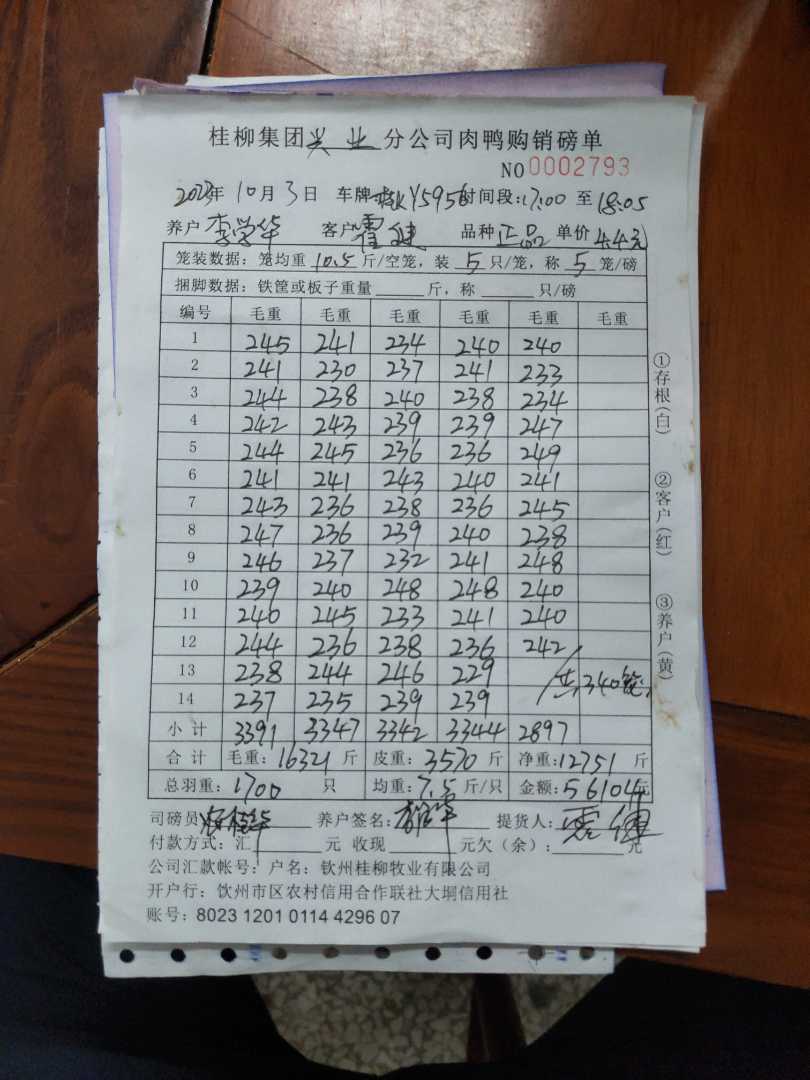 桂柳集团兴业分公司肉鸭购销磅单
NO 0002793
2023年10月3日 车牌桂KY5956时间段:17:00至18:05
养户李学华 客户霍健 品种正品 单价4.4元
笼装数据: 笼均重10.5斤/空笼, 装5只/笼, 称5笼/磅
捆脚数据: 铁筐或板子重量____斤, 称____只/磅
编号 毛重 毛重 毛重 毛重 毛重 毛重
1 245 241 234 240 240
2 241 230 237 241 233
3 244 238 240 238 234
4 242 243 239 239 247
5 244 245 236 236 249
6 241 241 243 240 241
7 243 236 238 236 245
8 247 236 239 240 238
9 246 237 232 241 248
10 239 240 248 248 240
11 240 245 233 241 240
12 244 236 238 236 242
13 238 244 246 229 共340笼
14 237 235 239 239
小计 3391 3347 3342 3344 2897
合计 毛重:16321斤 皮重:3570斤 净重:12751斤
总羽重:1700只 均重:7.5斤/只 金额:56104元
司磅员 养户签名: 提货人:霍健
付款方式: 汇____元 收现____元欠(余):____元
公司汇款帐号: 户名: 钦州桂柳牧业有限公司
开户行: 钦州市区农村信用合作联社大垌信用社
账号: 8023 1201 0114 4296 07
①存根(白)
②客户(红)
③养户(黄)